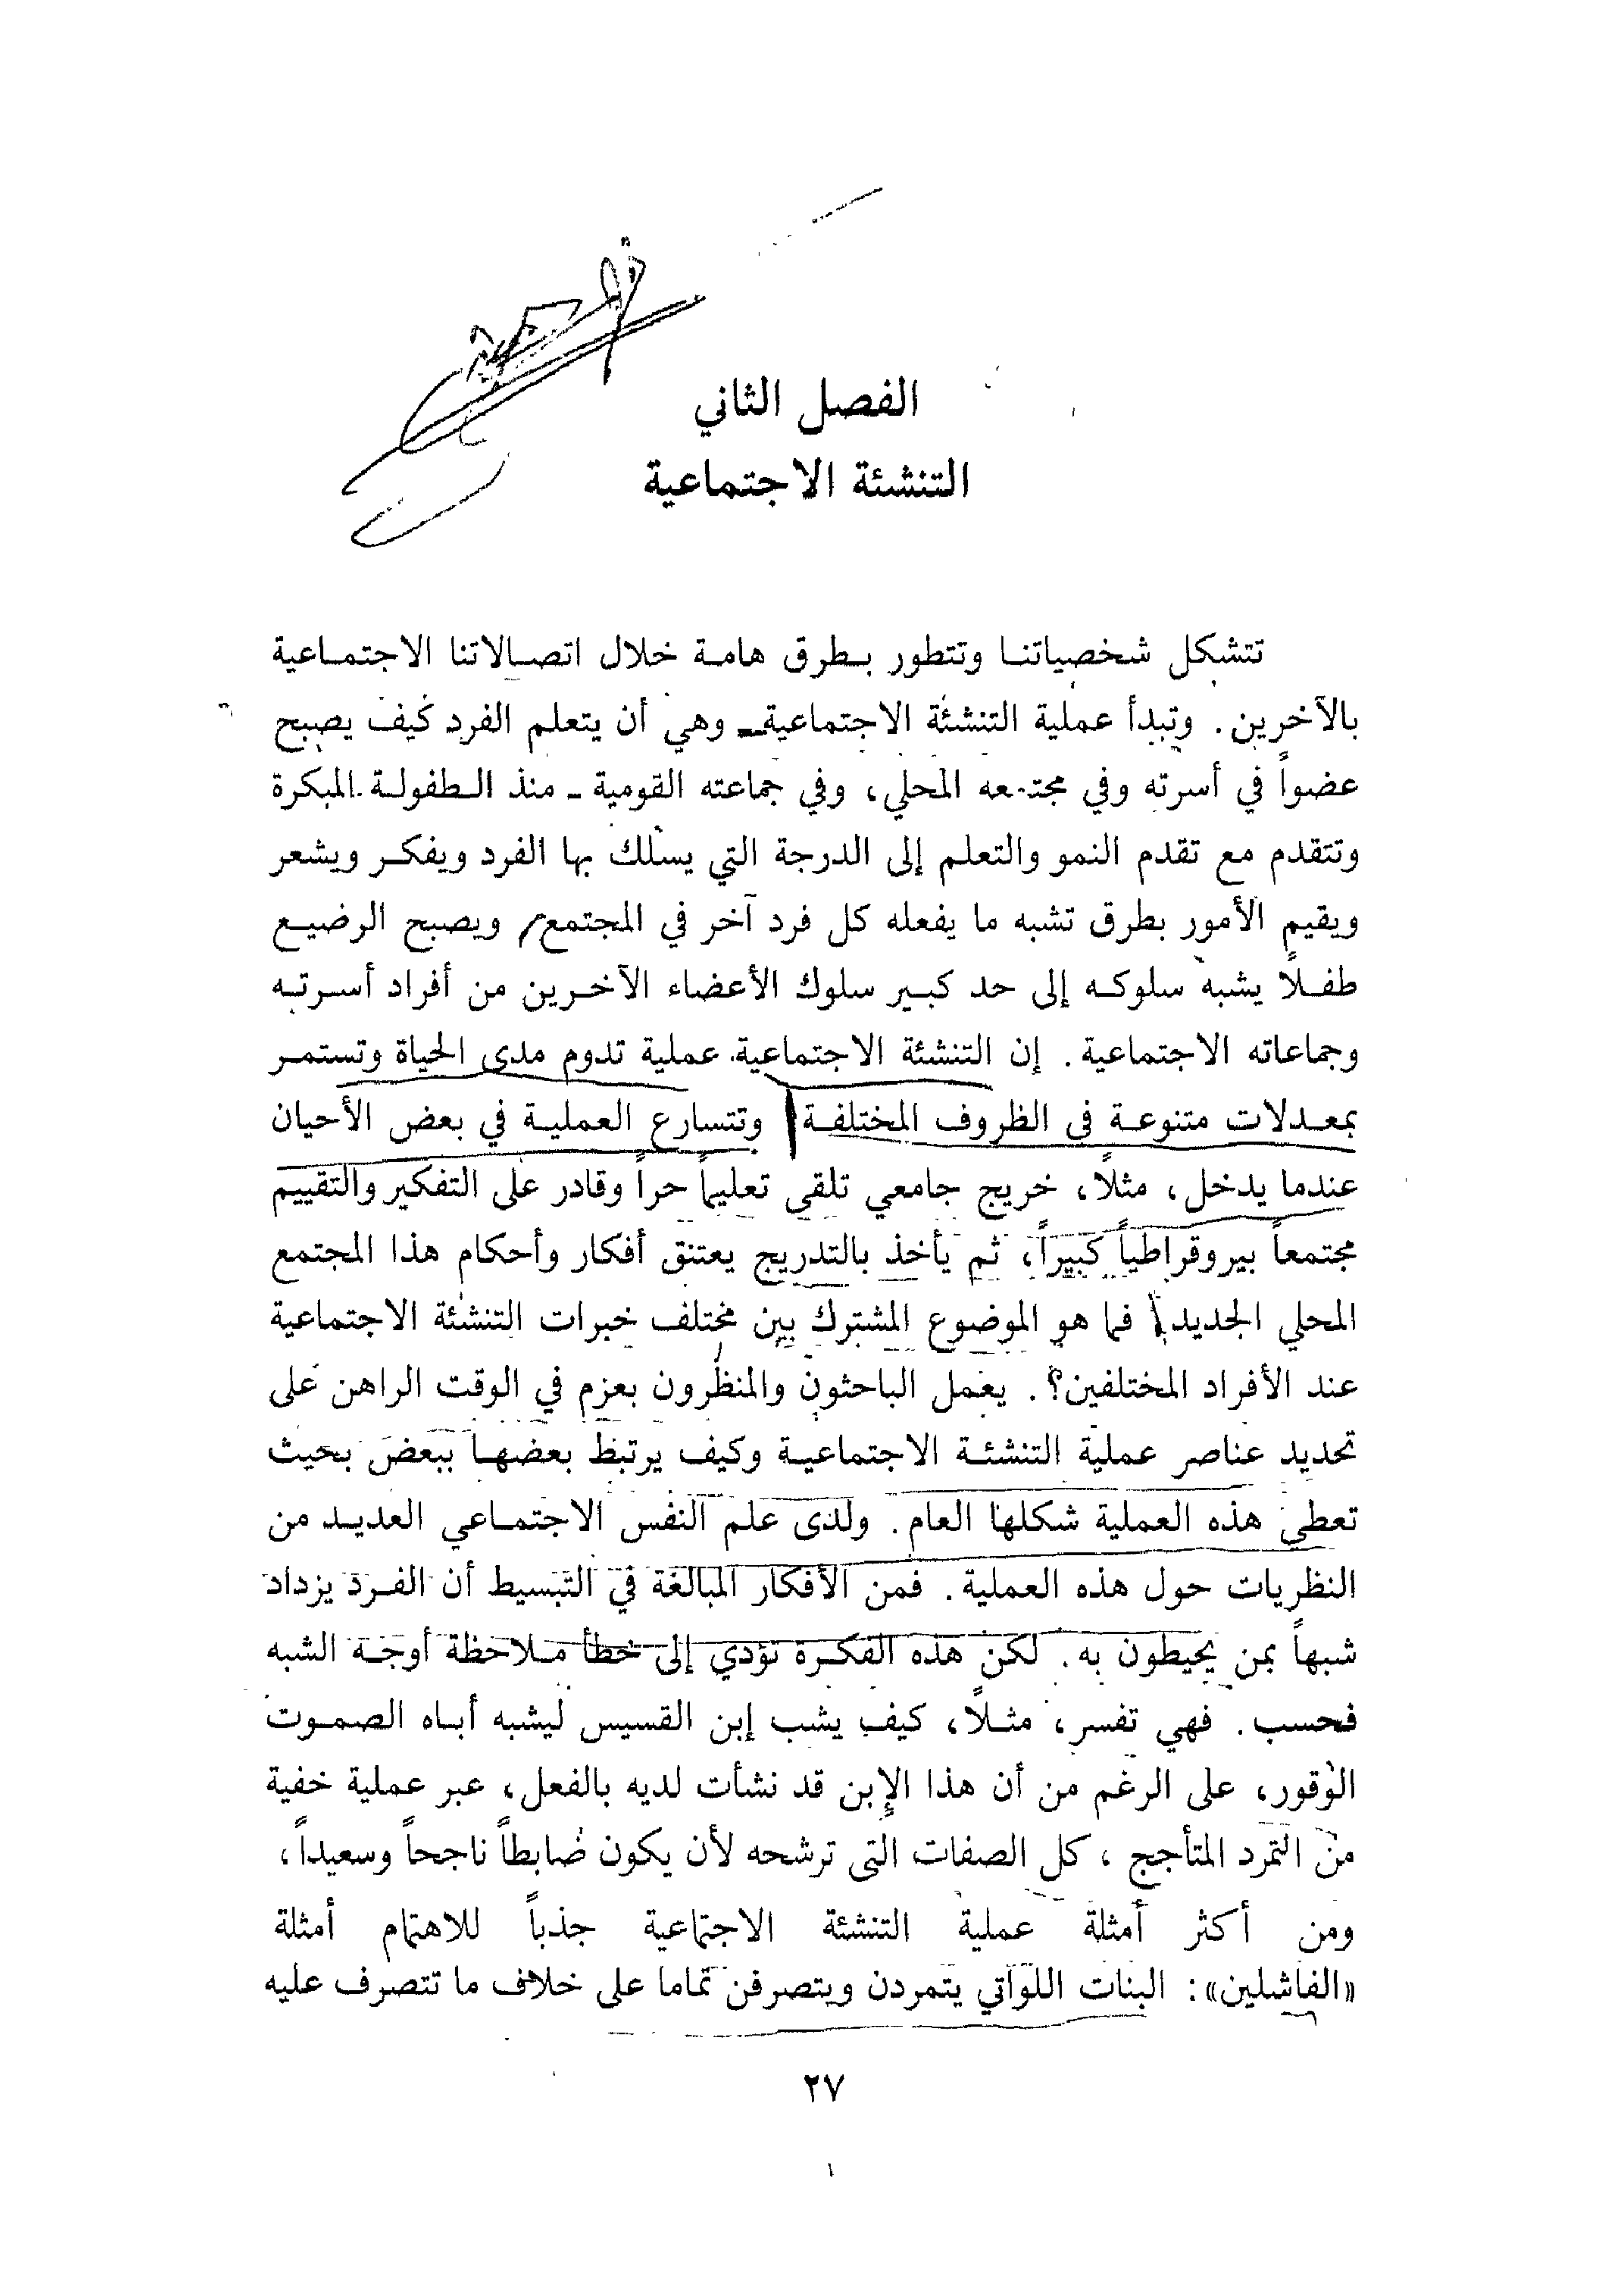 الفصل الثاني
التنشئة الاجتماعية
تتشكل شخصياتنا وتتطور بطرق هامة خلال اتصالاتنا الاجتماعية
بالآخرين. وتبدأ عملية التنشئة الاجتماعية ـ وهي أن يتعلم الفرد كيف يصبح
عضواً في أسرته وفي مجتمعه المحلي، وفي جماعته القومية ـ منذ الطفولة المبكرة
وتتقدم مع تقدم النمو والتعلم إلى الدرجة التي يسلك بها الفرد ويفكر ويشعر
ويقيم الأمور بطرق تشبه ما يفعله كل فرد آخر في المجتمع، ويصبح الرضيع
طفلاً يشبه سلوكه إلى حد كبير سلوك الأعضاء الآخرين من أفراد أسرته
وجماعاته الاجتماعية. إن التنشئة الاجتماعية عملية تدوم مدى الحياة وتستمر
بمعدلات متنوعة في الظروف المختلفة وتتسارع العملية في بعض الأحيان
عندما يدخل، مثلاً، خريج جامعي تلقى تعليماً حراً وقادر على التفكير والتقييم
مجتمعاً بيروقراطياً كبيراً، ثم يأخذ بالتدريج يعتنق أفكار وأحكام هذا المجتمع
المحلي الجديد فما هو الموضوع المشترك بين مختلف خبرات التنشئة الاجتماعية
عند الأفراد المختلفين؟. يعمل الباحثون والمنظرون بعزم في الوقت الراهن على
تحديد عناصر عملية التنشئة الاجتماعية وكيف يرتبط بعضها ببعض بحيث
تعطي هذه العملية شكلها العام. ولدى علم النفس الاجتماعي العديد من
النظريات حول هذه العملية. فمن الأفكار المبالغة في التبسيط أن الفرد يزداد
شبهاً بمن يحيطون به. لكن هذه الفكرة تؤدي إلى خطأ ملاحظة أوجه الشبه
فحسب. فهي تفسر، مثلاً، كيف يشب إبن القسيس ليشبه أباه الصموت
الوقور، على الرغم من أن هذا الإبن قد نشأت لديه بالفعل، عبر عملية خفية
من التمرد المتأجج، كل الصفات التي ترشحه لأن يكون ضابطاً ناجحاً وسعيداً،
ومن أكثر أمثلة عملية التنشئة الاجتماعية جذباً للاهتمام أمثلة
«الفاشلين»: البنات اللواتي يتمردن ويتصرفن تماما على خلاف ما تتصرف عليه
٢٧